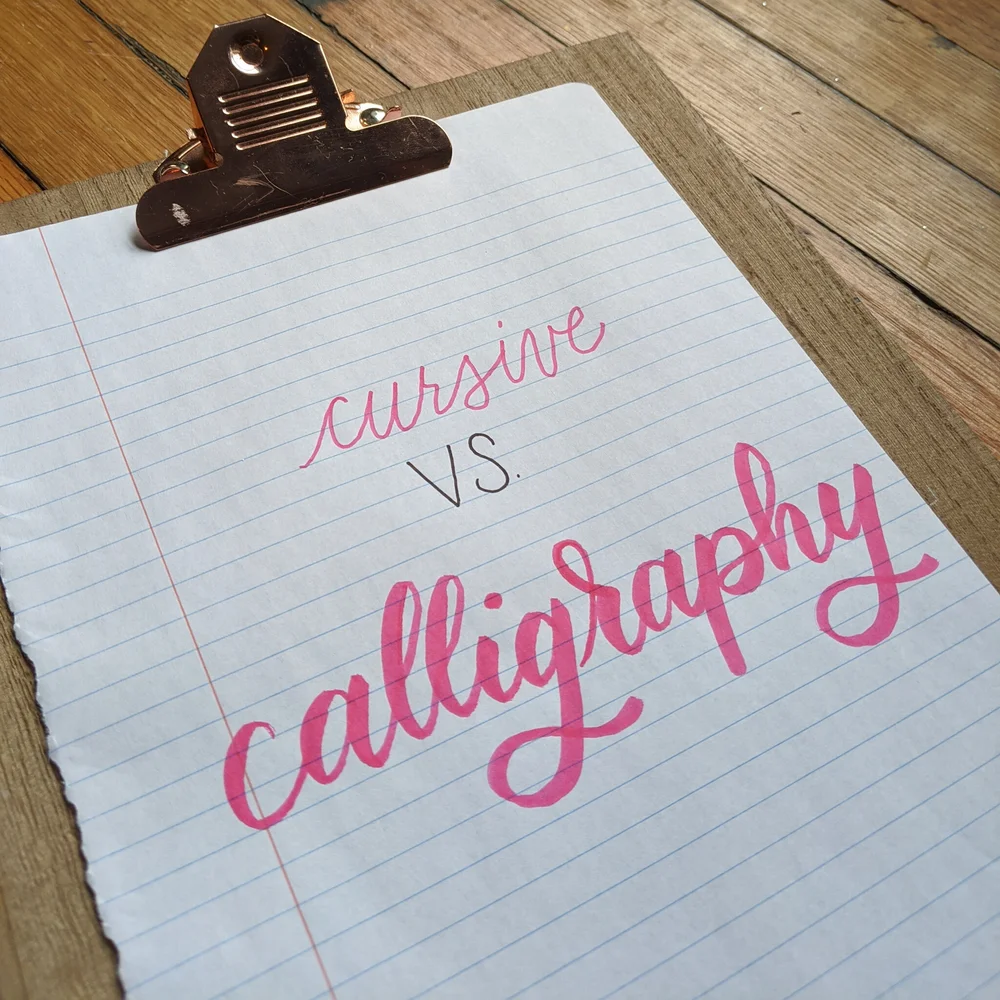 cursive
VS.
calligraphy